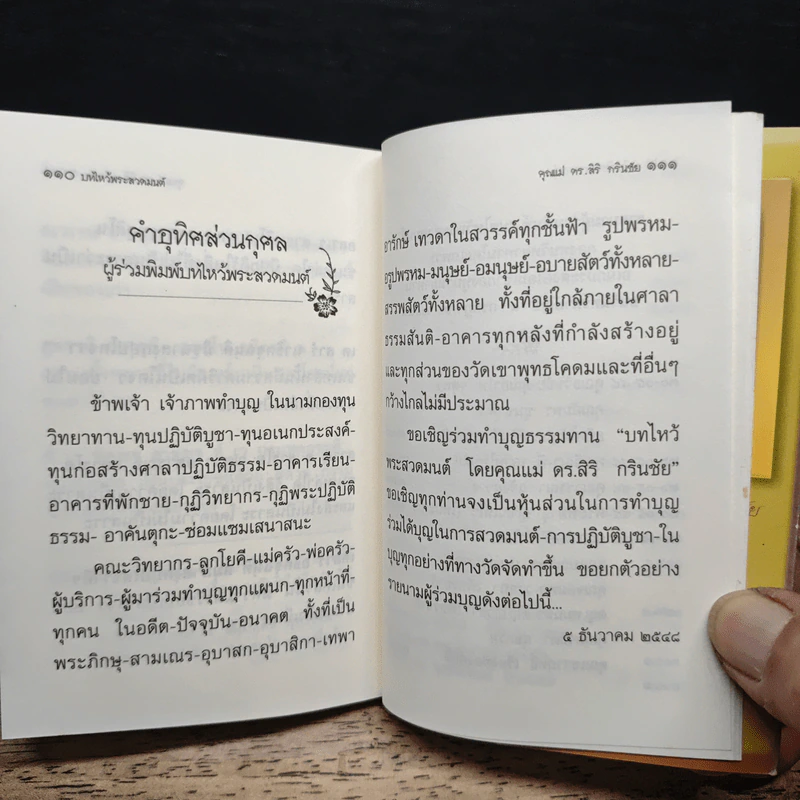 ๑๑๐ บทไหว้พระสวดมนต์
คำอุทิศส่วนกุศล
ผู้ร่วมพิมพ์บทไหว้พระสวดมนต์
ข้าพเจ้า เจ้าภาพทำบุญ ในนามกองทุน
วิทยาทาน-ทุนปฏิบัติบูชา-ทุนอเนกประสงค์-
ทุนก่อสร้างศาลาปฏิบัติธรรม-อาคารเรียน-
อาคารที่พักชาย-กุฏิวิทยากร-กุฏิพระปฏิบัติ
ธรรม- อาคันตุกะ-ซ่อมแซมเสนาสนะ
คณะวิทยากร-ลูกโยคี-แม่ครัว-พ่อครัว-
ผู้บริการ-ผู้มาร่วมทำบุญทุกแผนก-ทุกหน้าที่-
ทุกคน ในอดีต-ปัจจุบัน-อนาคต ทั้งที่เป็น
พระภิกษุ-สามเณร-อุบาสก-อุบาสิกา-เทพา
คุณแม่ ดร.สิริ กรินชัย ๑๑๑
อารักษ์ เทวดาในสวรรค์ทุกชั้นฟ้า รูปพรหม-
อรูปพรหม-มนุษย์-อมนุษย์-อบายสัตว์ทั้งหลาย-
สรรพสัตว์ทั้งหลาย ทั้งที่อยู่ใกล้ภายในศาลา
ธรรมสันติ-อาคารทุกหลังที่กำลังสร้างอยู่
และทุกส่วนของวัดเขาพุทธโคดมและที่อื่นๆ
กว้างไกลไม่มีประมาณ
ขอเชิญร่วมทำบุญธรรมทาน “บทไหว้
พระสวดมนต์ โดยคุณแม่ ดร.สิริ กรินชัย”
ขอเชิญทุกท่านจงเป็นหุ้นส่วนในการทำบุญ
ร่วมได้บุญในการสวดมนต์-การปฏิบัติบูชา-ใน
บุญทุกอย่างที่ทางวัดจัดทำขึ้น ขอยกตัวอย่าง
รายนามผู้ร่วมบุญดังต่อไปนี้...
๕ ธันวาคม ๒๕๔๘